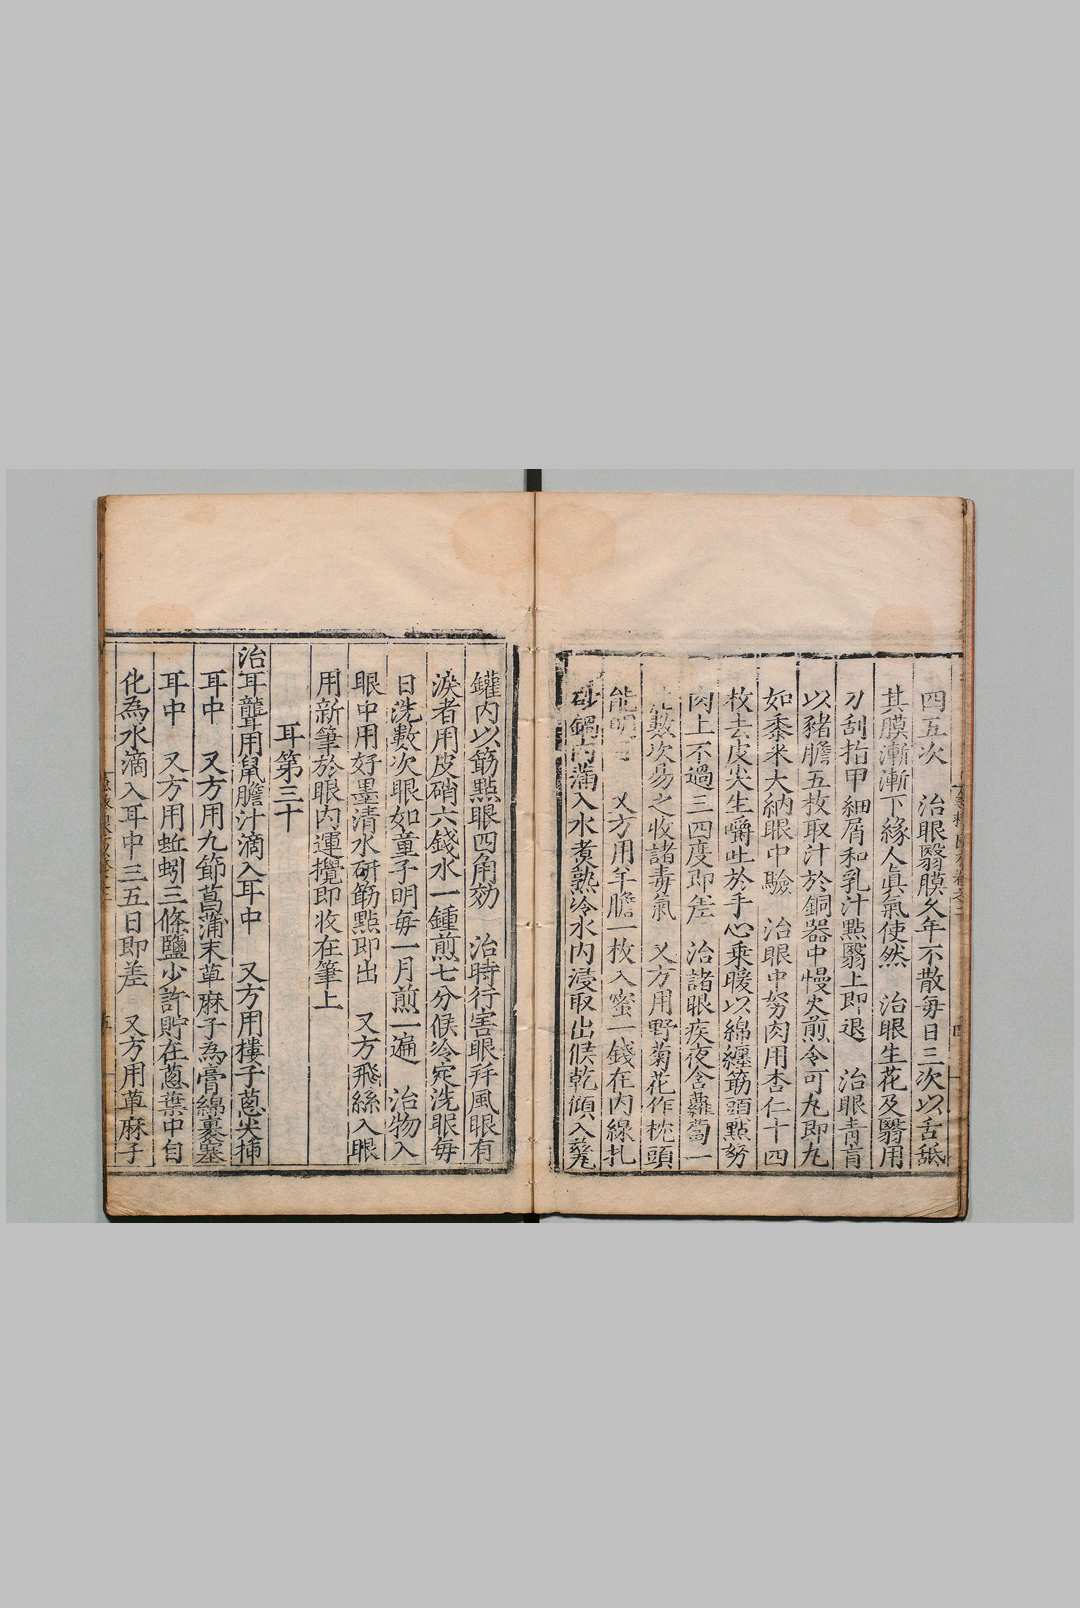 四五次　治眼翳膜久年不散每日三次以舌舐
其膜漸漸下緣人眞氣使然　治眼生花及翳用
刀刮指甲細屑和乳汁點翳上即退　治眼青盲
以豬膽五枚取汁於銅器中慢火煎令可丸即丸
如黍米大納眼中驗　治眼中努肉用杏仁十四
枚去皮尖生嚼吐於手心乘暖以綿纏筯頭點努
肉上不過三四度即差　治諸眼疾夜含蘿蔔一
數次易之收諸毒氣　又方用野菊花作枕頭
能明目　又方用羊膽一枚入蜜一錢在內線扎
砂鍋內滿入水煮熟冷水內浸取出候乾傾入甆
罐內以筯點眼四角効　治時行害眼幷風眼有
淚者用皮硝六錢水一鍾煎七分候冷定洗眼每
日洗數次眼如童子明每一月煎一遍　治物入
眼中用好墨清水研筯點即出　又方飛絲入眼
用新筆於眼內運攪即收在筆上
耳第三十
治耳聾用鼠膽汁滴入耳中　又方用樓子蔥尖揷
耳中　又方用九節菖蒲末草麻子為膏綿裹塞
耳中　又方用蚯蚓三條鹽少許貯在蔥葉中自
化為水滴入耳中三五日即差　又方用草麻子